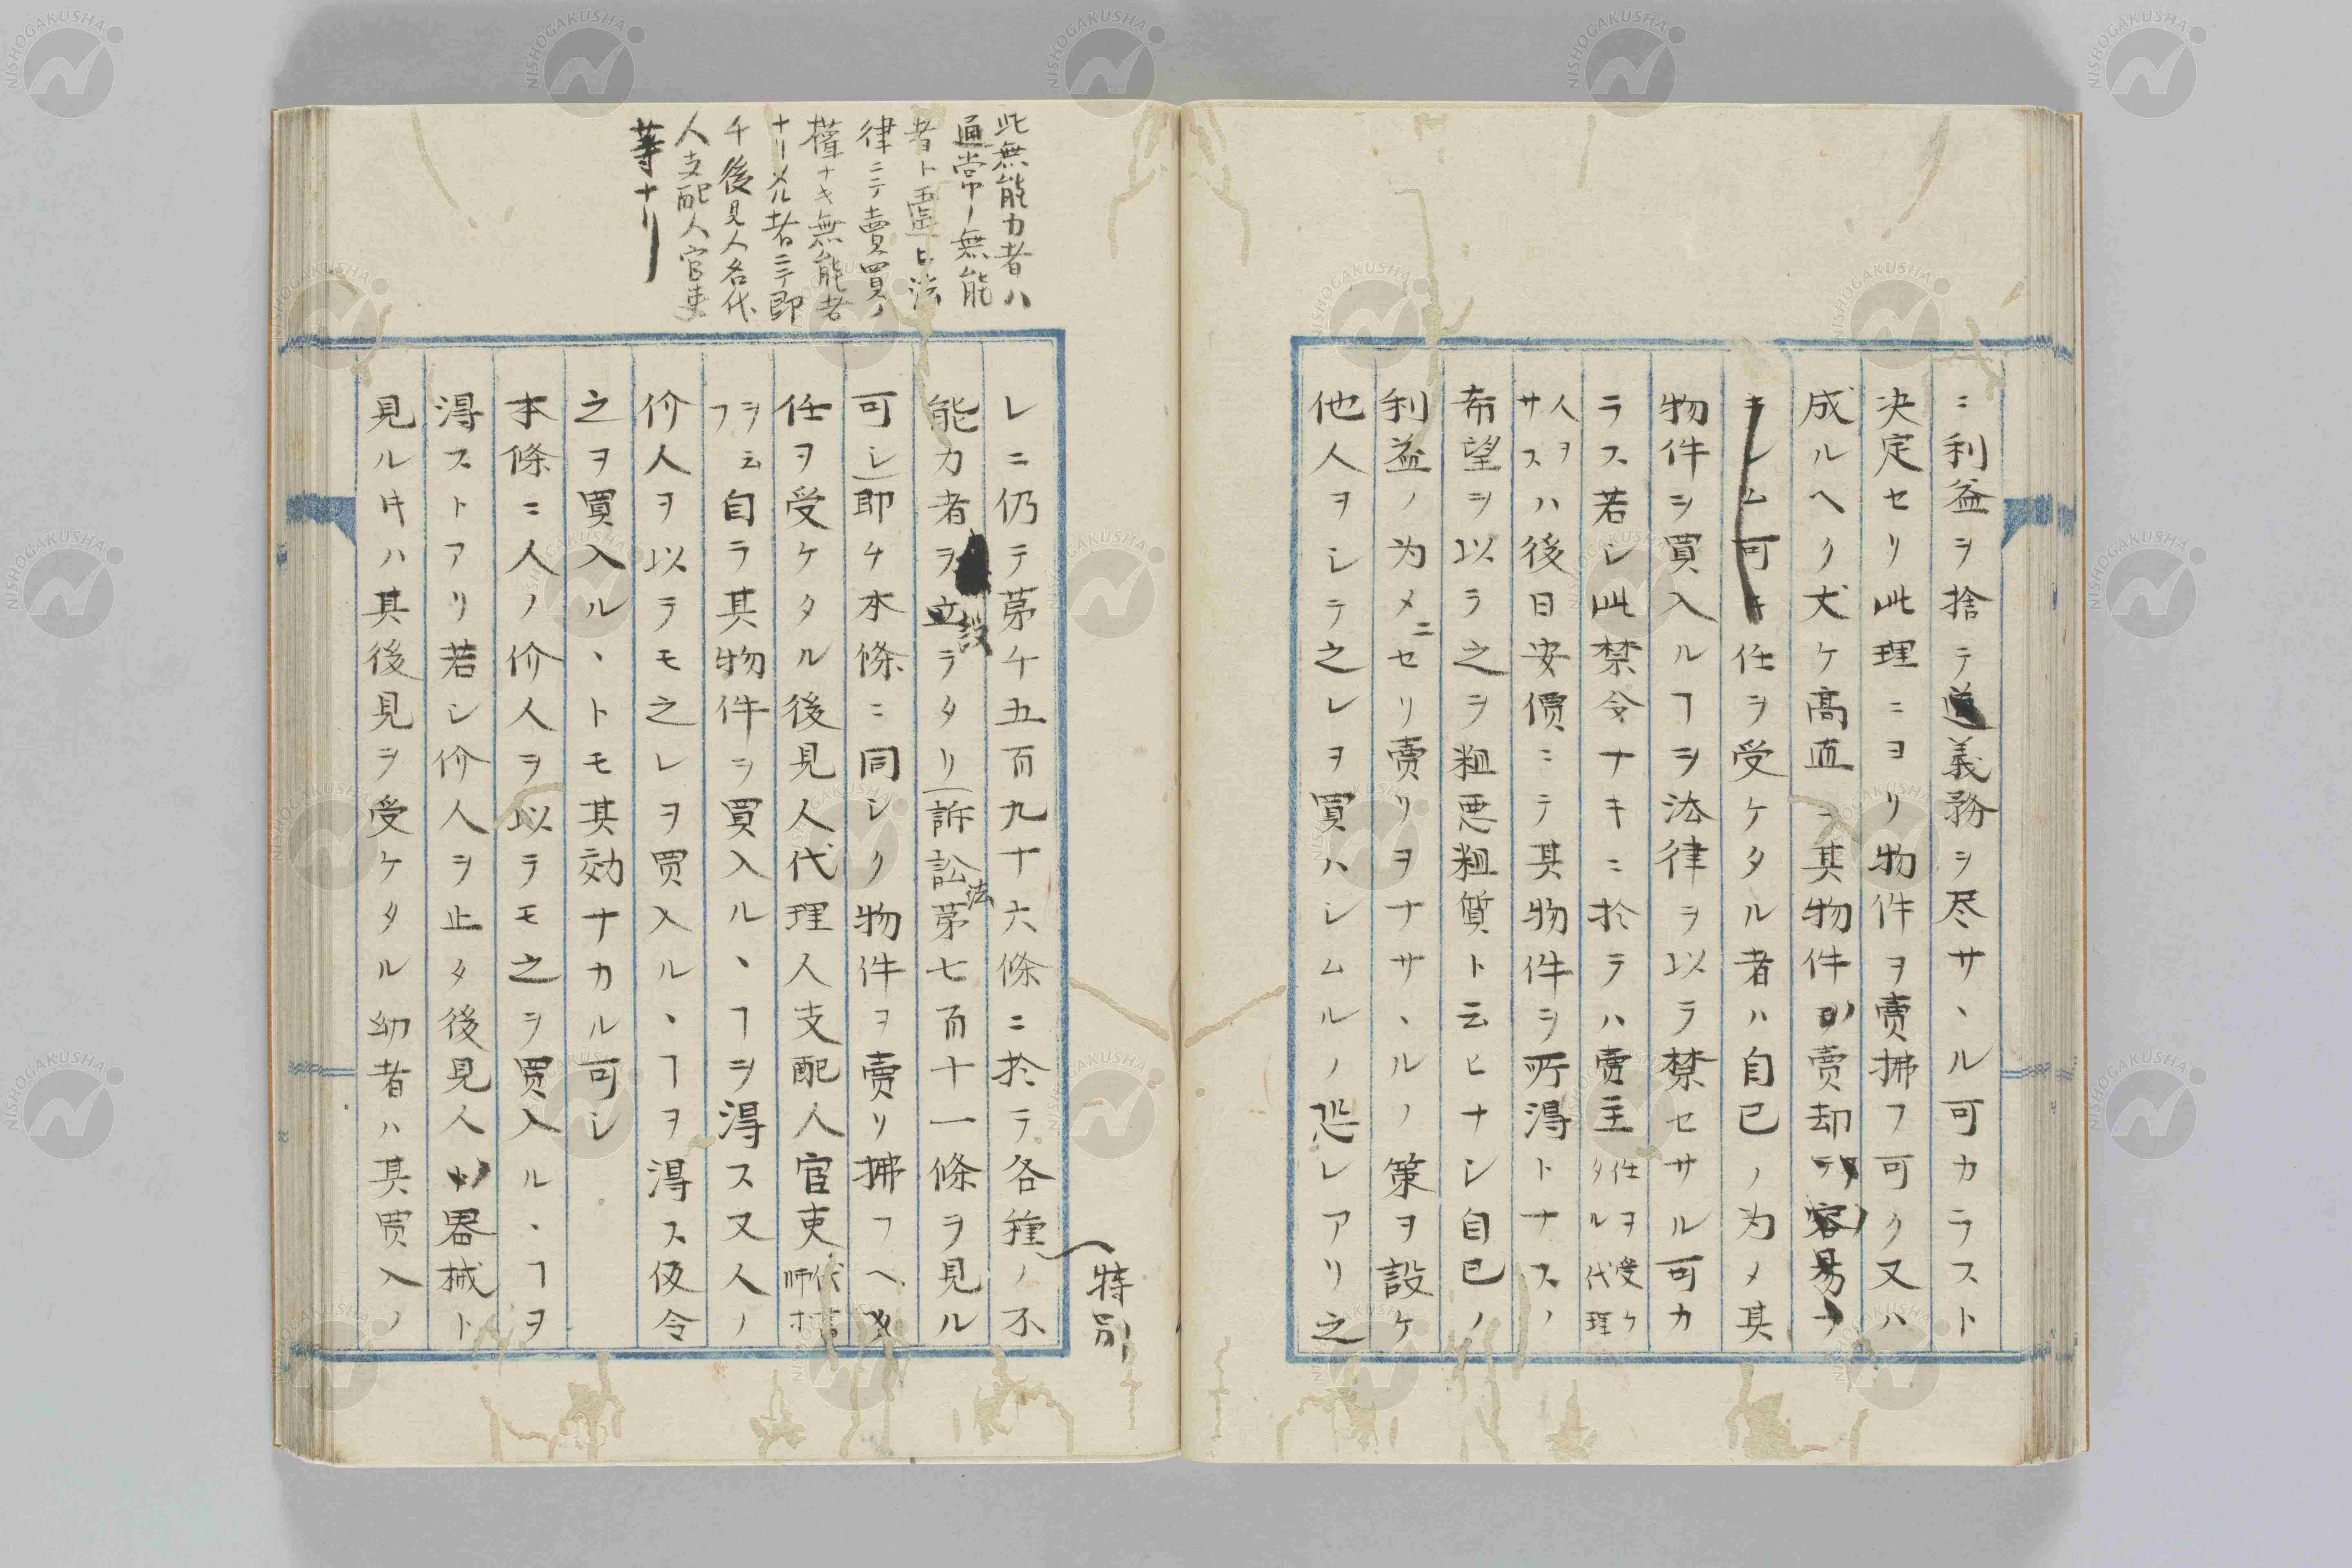 ニ利益ヲ捨テ義務ヲ尽サヽル可カラスト
決定セリ此理ニヨリ物件ヲ賣拂フ可ク又ハ
成ルヘク丈ケ高直ニ其物件賣却
キレム可キ任ヲ受ケタル者ハ自己ノ為メ其
物件ヲ買入ルヿヲ法律ヲ以テ禁セサル可カ
ラス若シ此禁令ナキニ於テハ賣主任ヲ受ケタル代理
人ヲサスハ後日安價ニテ其物件ヲ所得トナスノ
希望ヲ以テ之ヲ粗悪粗質ト云ヒナシ自己ノ
利益ノ為メニセリ賣リヲナサヽルノ策ヲ設ケ
他人ヲシテ之レヲ買ハシムルノ恐レアリ之
此無能力者ハ
通常ノ無能
者ト違ヒ法
律ニテ賣買ノ
權ナキ無能者
ナリメル者ニテ即
チ後見人名代
人支配人官吏
等ナリ
特別
レニ仍テ第千五百九十六條ニ於テ各種ノ不
能力者ヲ設立テタリ(訴訟法第七百十一條ヲ見ル
可シ)即チ本條ニ同シク物件ヲ賣リ拂フヘキ
任ヲ受ケタル後見人代理人支配人官吏
ヲ云フ自ラ其物件ヲ買入ルヽヿヲ得ス又人ノ
价人ヲ以テモ之レヲ買入ルヽヿヲ得ス仮令
之ヲ買入ルヽトモ其効ナカル可シ
本條ニ人ノ价人ヲ以テモ之ヲ買入ルヽヿヲ
得ストアリ若シ价人ヲ止タ後見人器械ト
見ル㪅ハ其後見ヲ受ケタル幼者ハ其買入ノ